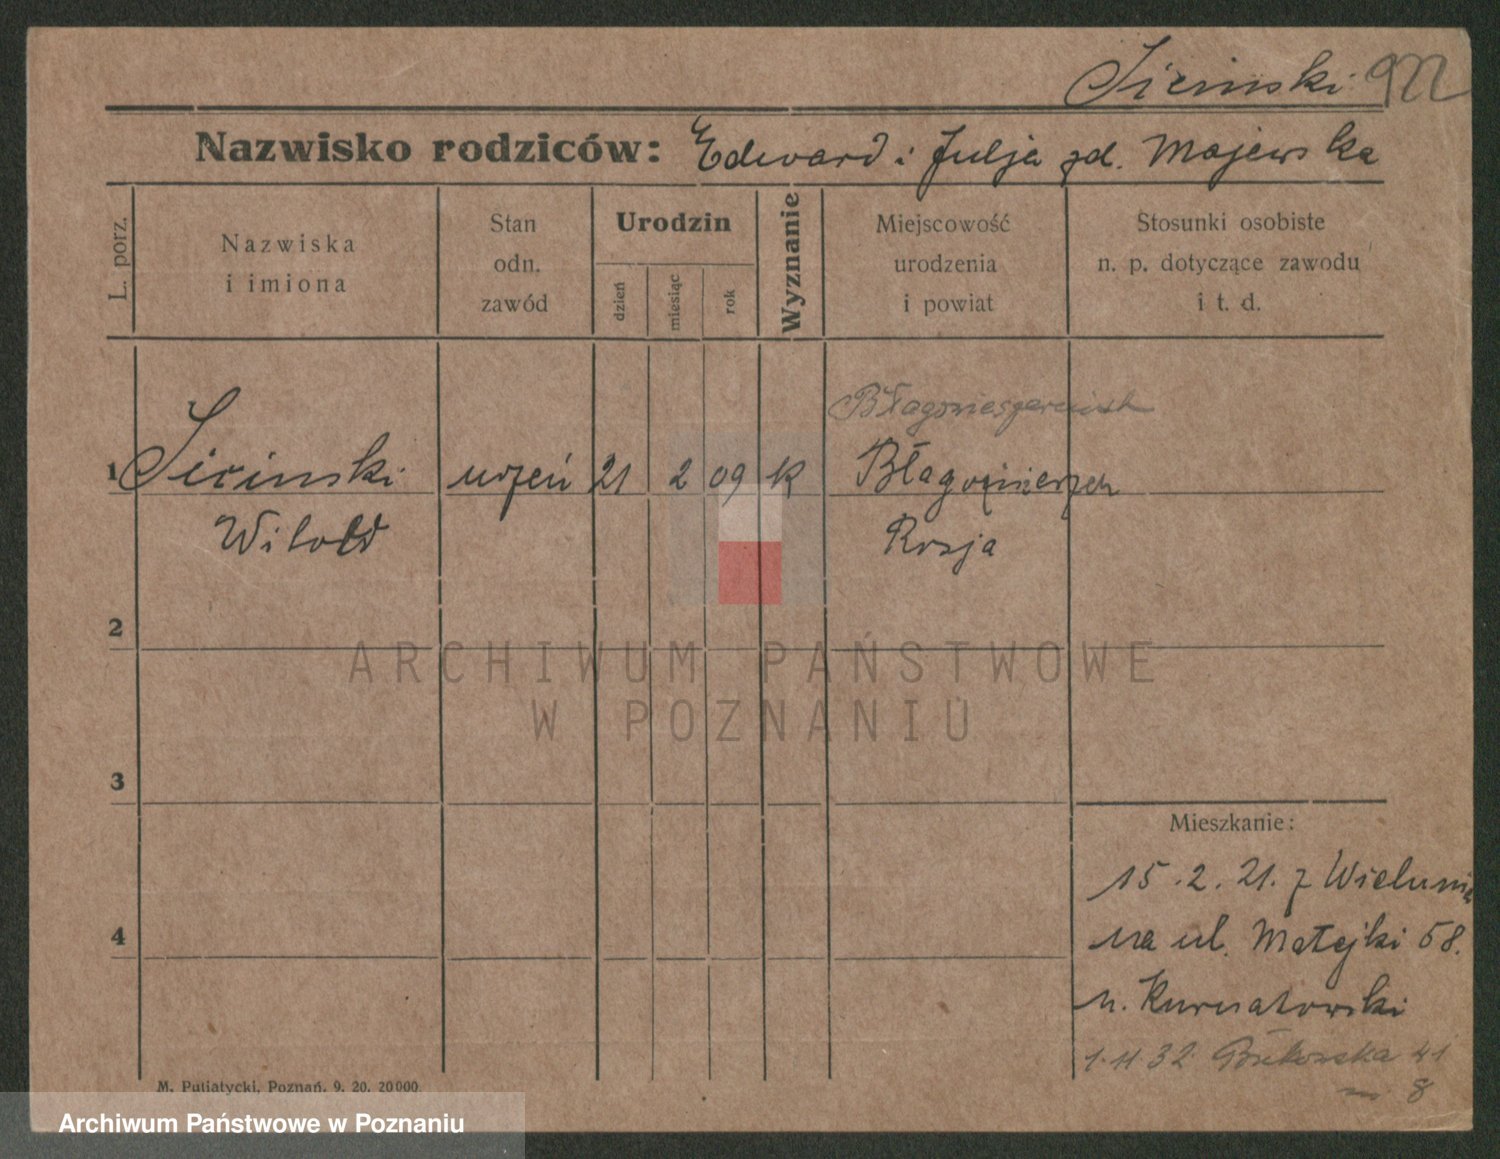 Siciński 922
Nazwisko rodziców: Edward i Julja zd. Majewska
L. porz.
Nazwiska
i imiona
Stan
odn.
zawód
Urodzin
dzień
miesiąc
rok
Wyznanie
Miejscowość
urodzenia
i powiat
Stosunki osobiste
n. p. dotyczące zawodu
i t. d.
1 Siciński uczeń 21 2 09 k
Witold Rosja
2
ARCHIWUM PAŃSTWOWE
W POZNANIU
3
Mieszkanie:
15.2.21. z Wielunia
4
na ul. Matejki 58.
u. Kurnatowski
1.11 32 Bukowska 41
m. 8
M. Putiatycki, Poznań. 9. 20. 20000
Archiwum Państwowe w Poznaniu